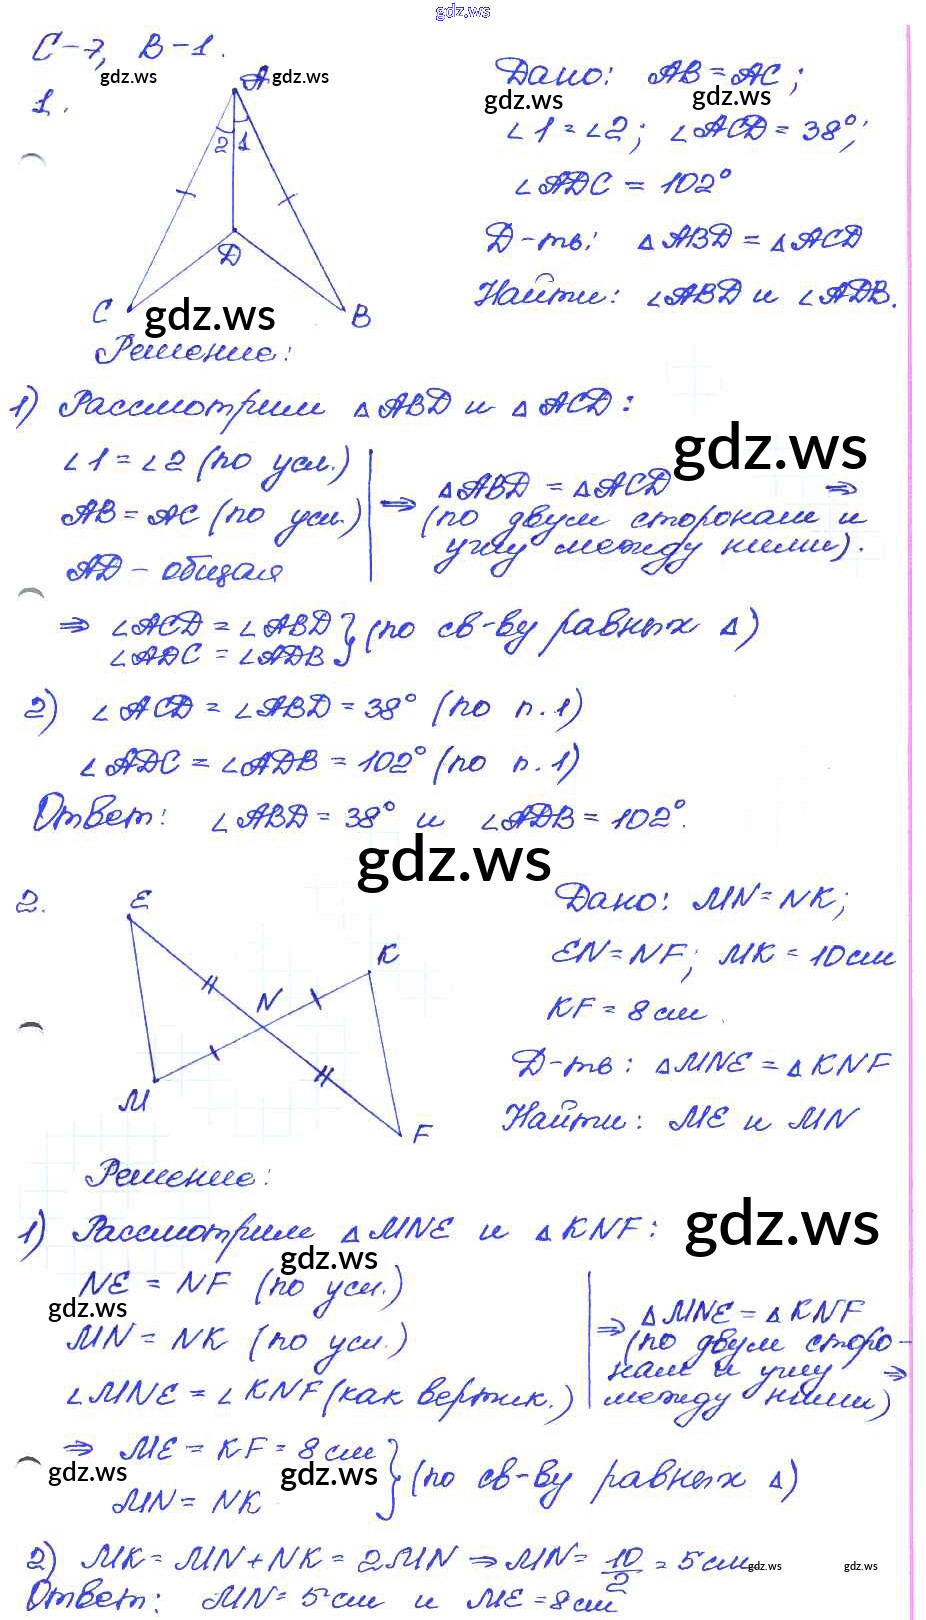 gdz.ws
С-7, В-1.
gdz.ws gdz.ws
1.
A
2 1
D
C
B
Дано: AB = AC;
gdz.ws gdz.ws
∠1 = ∠2; ∠ACD = 38°;
∠ADC = 102°
Д-ть: △ABD = △ACD
Найти: ∠ABD и ∠ADB.
gdz.ws
Решение:
1) Рассмотрим △ABD и △ACD:
gdz.ws
∠1 = ∠2 (по усл.)
AB = AC (по усл.)
AD - общая
⇒ △ABD = △ACD ⇒
(по двум сторонам и
углу между ними).
⇒ ∠ACD = ∠ABD
∠ADC = ∠ADB } (по св-ву равных △)
2) ∠ACD = ∠ABD = 38° (по п.1)
∠ADC = ∠ADB = 102° (по п.1)
Ответ: ∠ABD = 38° и ∠ADB = 102°.
gdz.ws
2.
E
K
N
M
F
Дано: MN = NK;
EN = NF; MK = 10см
KF = 8см.
Д-ть: △MNE = △KNF
Найти: ME и MN
Решение:
gdz.ws
1) Рассмотрим △MNE и △KNF:
gdz.ws
NE = NF (по усл.)
gdz.ws
MN = NK (по усл.)
∠MNE = ∠KNF (как вертик.)
⇒ △MNE = △KNF
(по двум сторо-
нам и углу ⇒
между ними)
⇒ ME = KF = 8см
gdz.ws gdz.ws
MN = NK } (по св-ву равных △)
2) MK = MN + NK = 2MN ⇒ MN = 10/2 = 5см
gdz.ws gdz.ws
Ответ: MN = 5см и ME = 8см